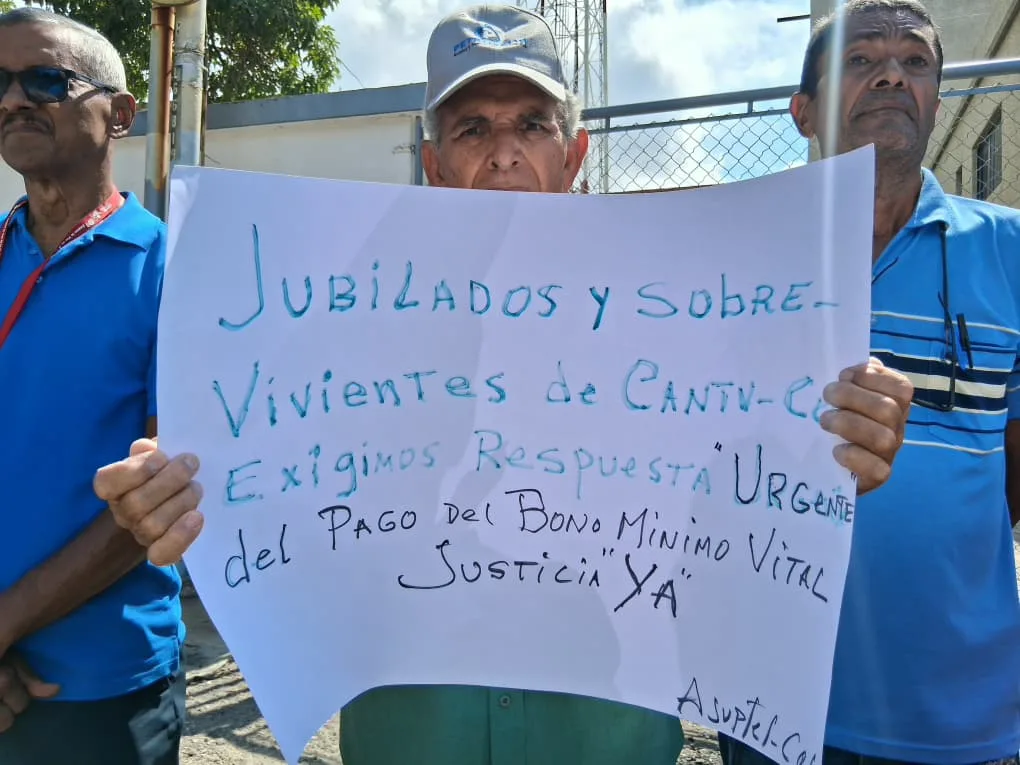 JUBILADOS Y SOBRE-
ViVientes de CANTV-Co
Exigimos Respuesta "URgente"
del PAGO Del BONO MINIMO VITAL
JUSTICIA "YA"
Asuptel-Co